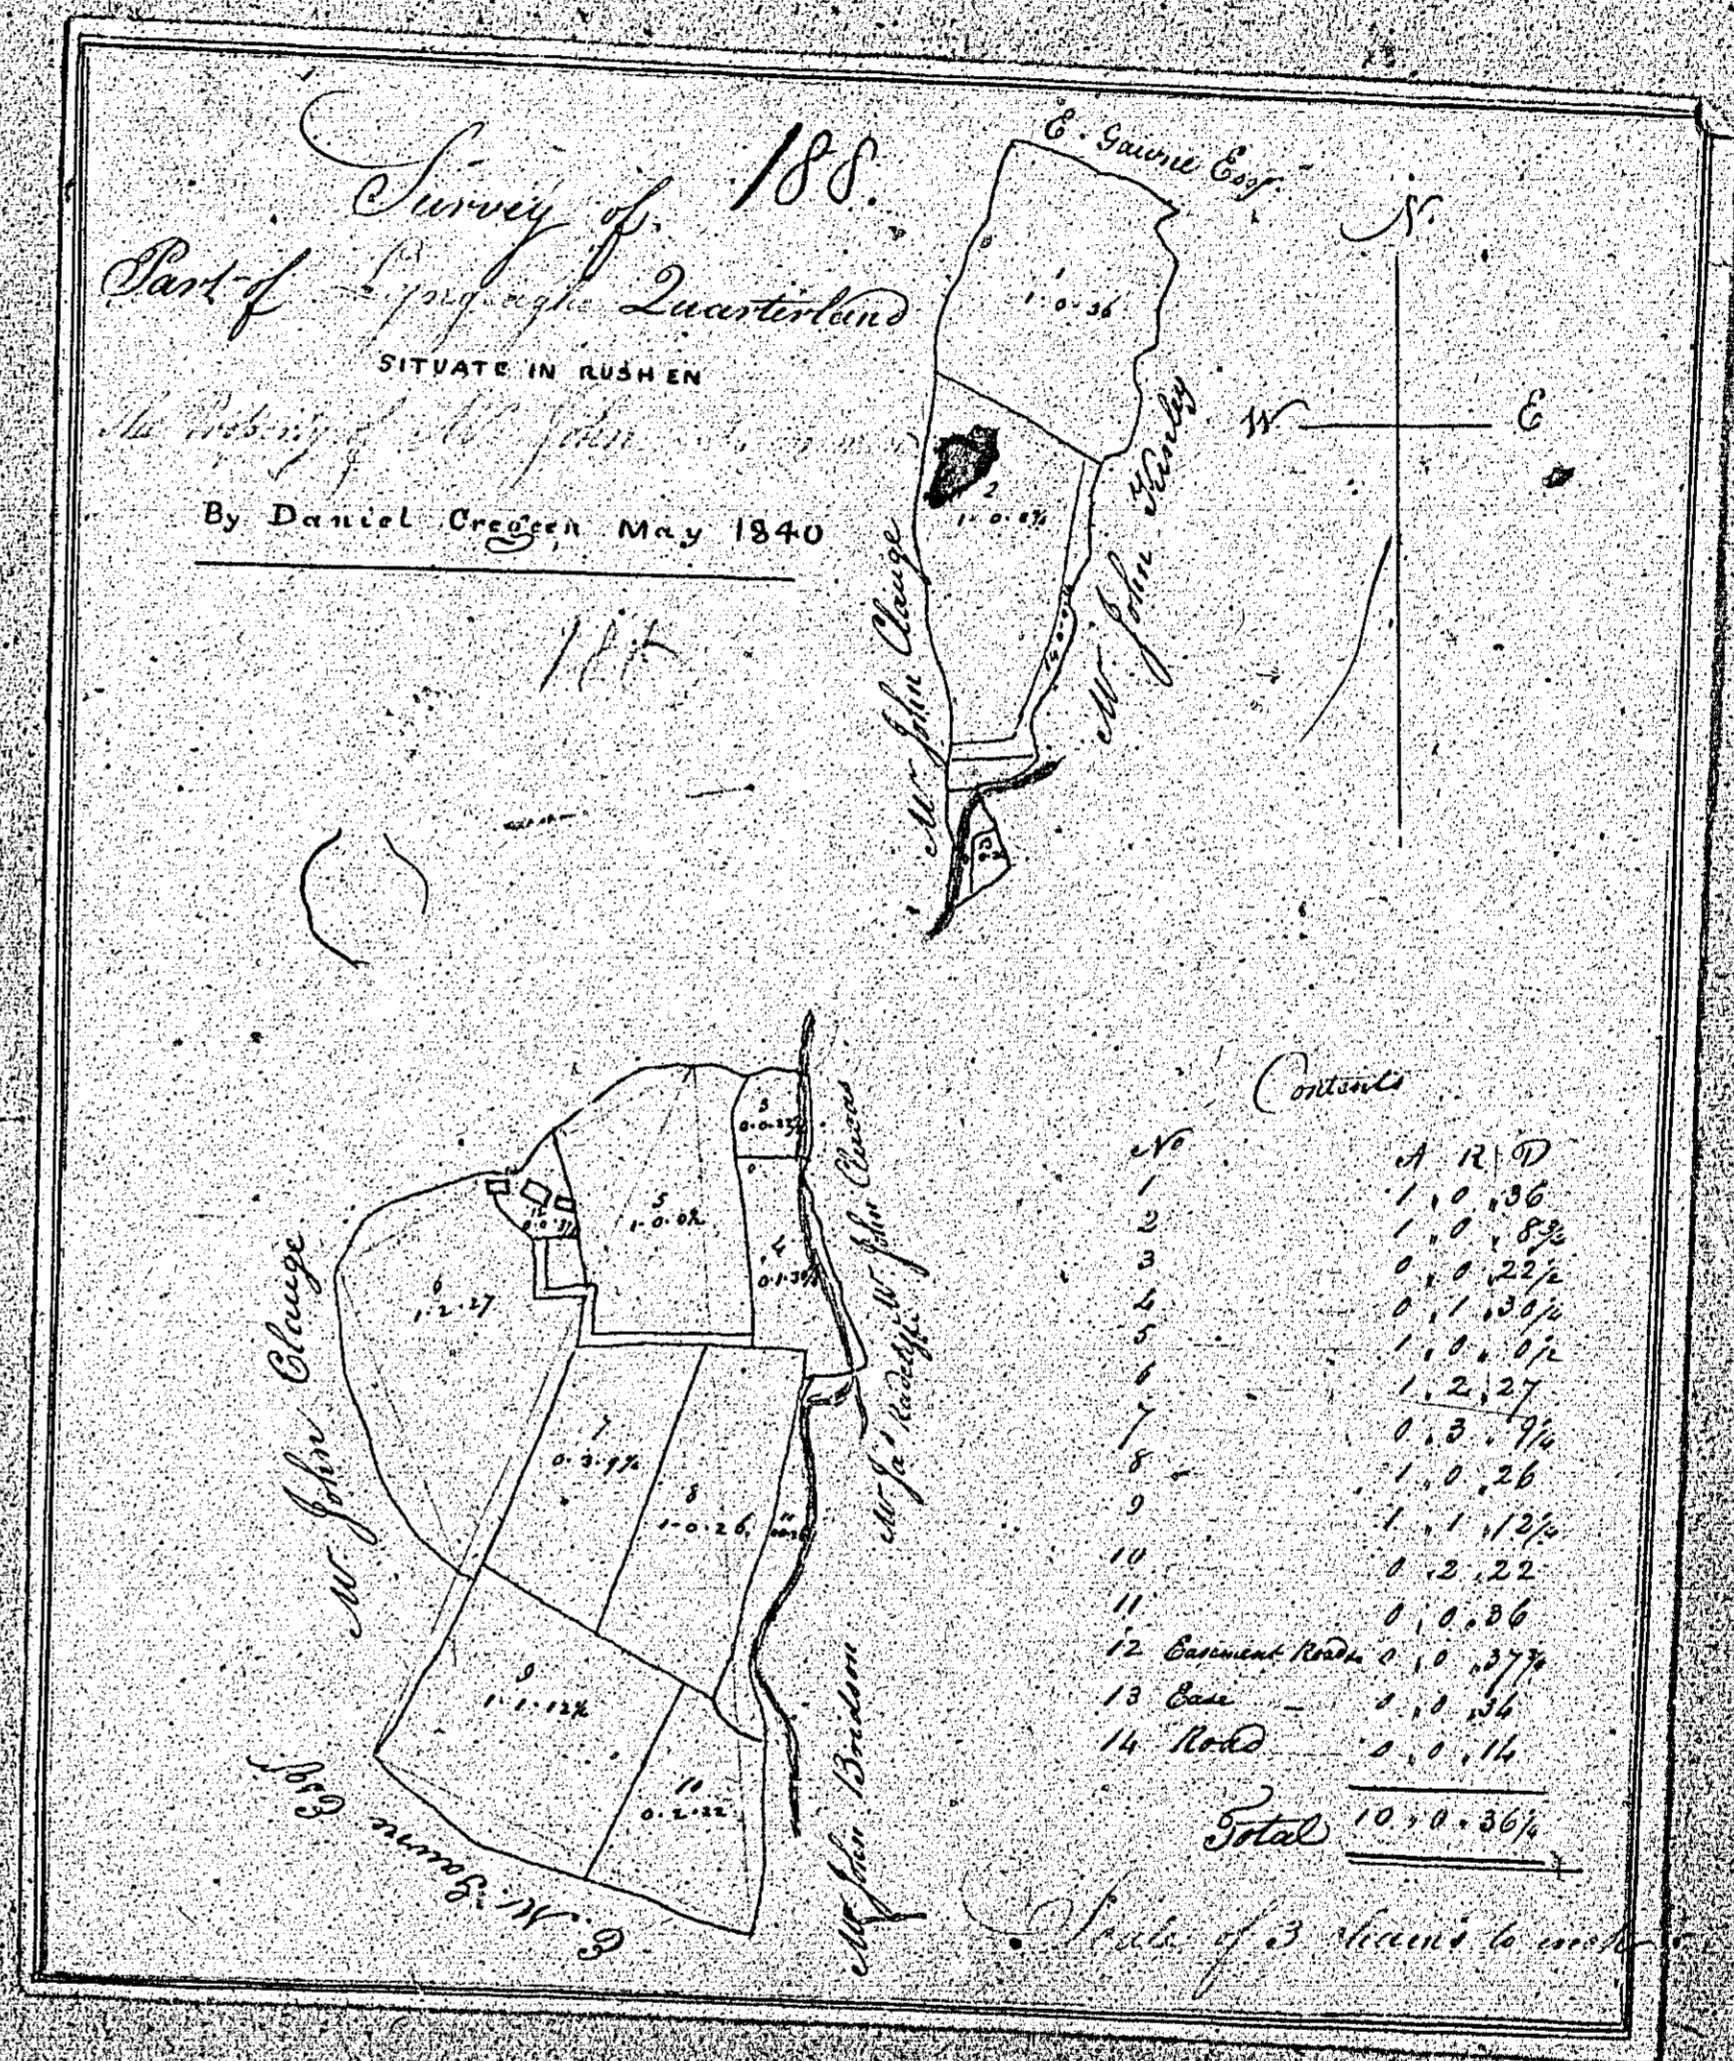 188.
Survey of
Part of Quarterland
SITUATE IN RUSHEN
The Property of Mr John
By Daniel Cregeen May 1840
184
E. Gawne Esqr.
N.
W
E
1
1.0.36
2
1.0.8¾
14
Mr John Clauge
Mr. John Kinley
3
0.0.22½
4
0.1.30¼
5
1.0.0½
6
1.2.27
7
0.3.9¼
8
1.0.26
9
1.1.12¼
10
0.2.22
11
12
0.0.37¾
Mr John Clauge
Mr John Clucas
Mr Jas Radcliffe
Mr John Bridson
E. M. Gawne Esqr
Contents
No A R P
1 1,0,36
2 1,0,8¾
3 0,0,22½
4 0,1,30¼
5 1,0,0½
6 1,2,27
7 0,3,9¼
8 1,0,26
9 1,1,12¼
10 0,2,22
11 0,0,36
12 Easement Roads 0,0,37¾
13 Ease 0,0,34
14 Road 0,0,14
Total 10,0,36¼
Scale of 3 chains to inch